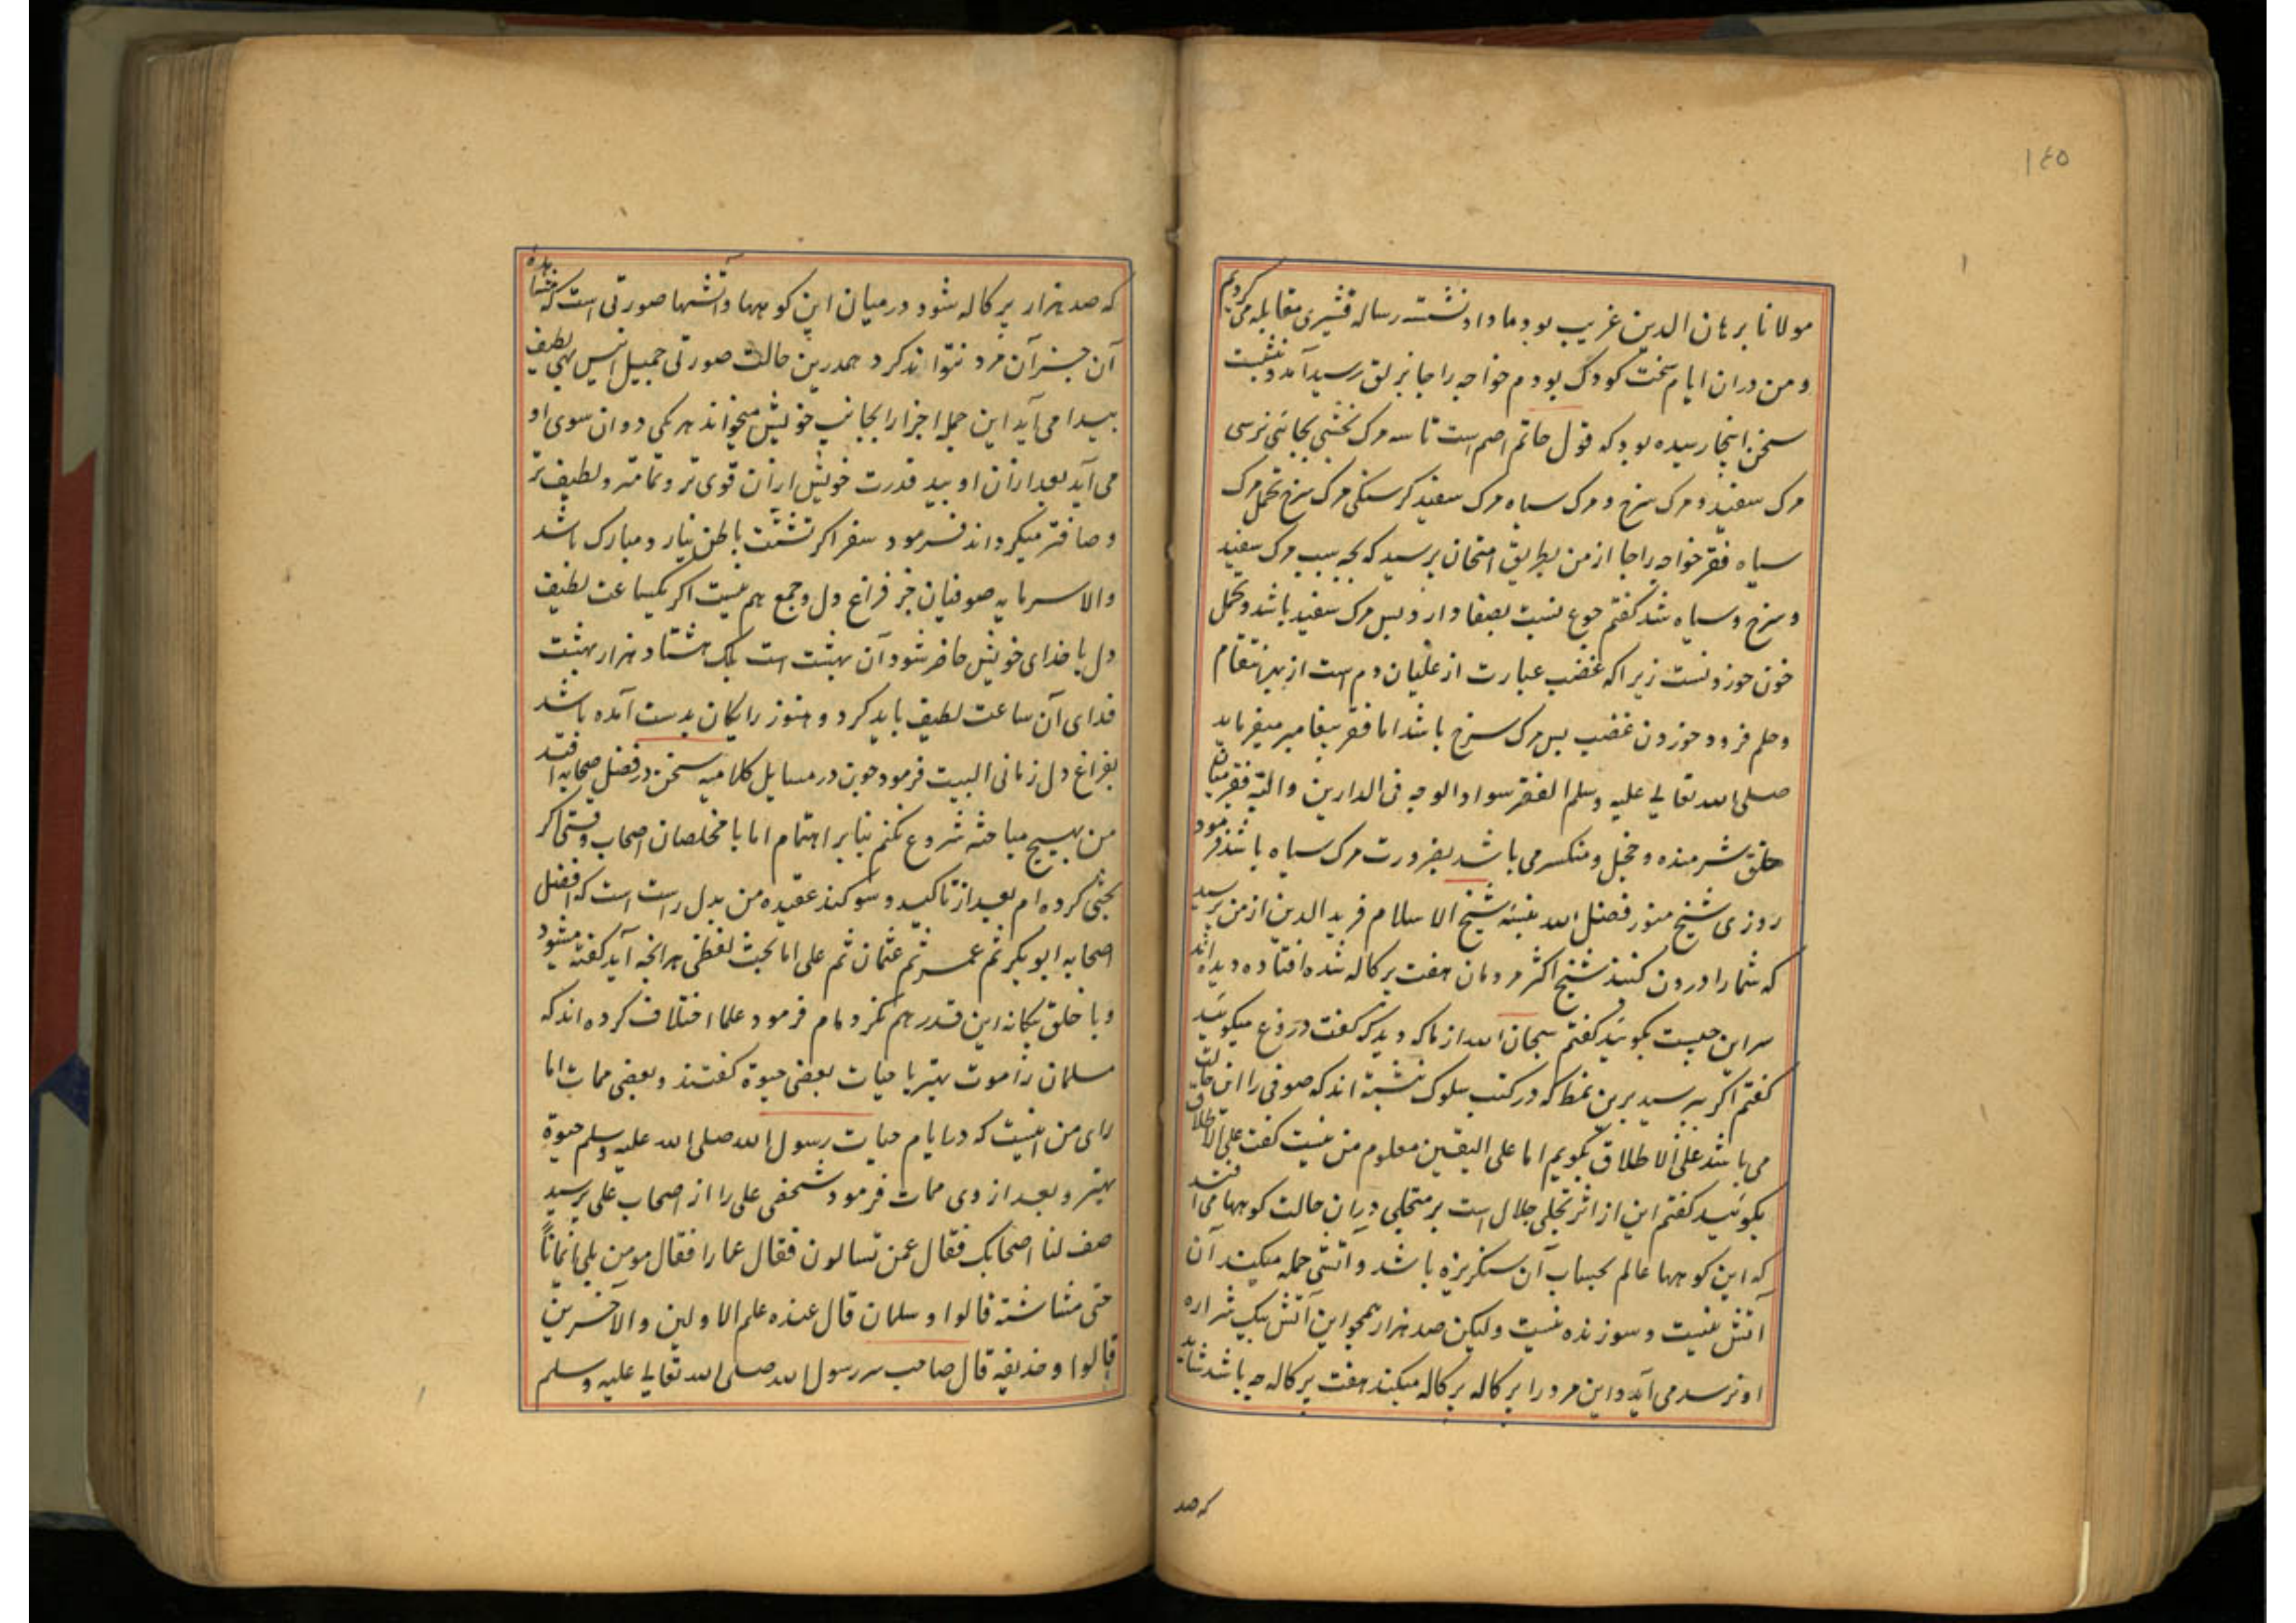 ١٤٥
مولانا برهان الدین غریب بود ما و او نشسته رساله قشیری مقابله می کردیم
و من دران ایام سخت کودک بودم خواجه راجا نزلق رسید آمد و نشست
سخن اینجا رسیده بود که قول حاتم اصم است تا سه مرک نخشی بجائی نرسی
مرک سفید و مرک سرخ و مرک سیاه مرک سفید کرسنکی مرک سرخ تحمل مرک
سیاه فقر خواجه راجا از من بطریق امتحان پرسید که بچه سبب مرک سفید
و سرخ و سیاه شد کفتم جوع نسبت بصفا دارد پس مرک سفید باشد و تحمل
خون خوردنست زیرا که غضب عبارت از غلیان دم است از بهر انتقام
و حلم فرود خوردن غضب پس مرک سرخ باشد اما فقر پیغامبر میفرماید
صلی الله تعالی علیه وسلم الفقر سواد الوجه فی الدارین و البته فقیر میان
خلق شرمنده و خجل و منکسر می باشد بضرورت مرک سیاه باشد فرمود
روزی شیخ منور فضل الله نبسه شیخ الاسلام فرید الدین از من پرسید
که شما را درون کنند شیخ اکثر مردمان هفت پرکاله شده افتاده دیده اند
سر این چیست بکوئید کفتم سبحان الله از ما که دید که کفت دروغ میکوئید
کفتم اکر بپرسید برین نمط که در کتب سلوک نبشته اند که صوفی را این حالت
می باشد علی الاطلاق بکویم اما علی الیقین معلوم من نیست کفت علی الاطلاق
بکوئید کفتم این از اثر تجلی جلال است بر متجلی دران حالت کوهها می افتد
که این کوهها عالم بحساب آن سنکریزه باشد و آتشی حمله میکند آن
آتش نیست و سوزنده نیست ولیکن صد هزار همچو این آتش بیک شراره
او نرسد می آید و این مرد را پرکاله پرکاله میکند هفت پرکاله چه باشد شاید
که صد
که صد هزار پرکاله شود درمیان این کوهها و آتشها صورتی است که مشاهده
آن جز آن مرد نتواند کرد همدرین حالت صورتی جمیل انیس بهی لطیف
پیدا می آید این جمله اجزا را بجانب خویش میخواند هر یکی دوان سوی او
می آید بعد ازان او بید قدرت خویش ازان قوی تر و تمامتر و لطیف تر
و صافتر میکرداند فرمود سفر اکر تشتت باطن نیارد مبارک باشد
والا سرمایه صوفیان جز فراغ دل و جمع هم نیست اکر یکساعت لطیف
دل با خدای خویش حاضر شود آن بهشت است بلک هشتاد هزار بهشت
فدای آن ساعت لطیف باید کرد و هنوز رایکان بدست آمده باشد
بفراغ دل زمانی البیت فرمود چون در مسایل کلامیه سخن در فضل صحابه افتد
من بهیچ مباحثه شروع نکنم بنابر اهتمام اما با مخلصان اصحاب وقتی اکر
بحثی کرده ام بعد از تاکید و سوکند عقیده من بدل راست است که افضل
اصحابه ابوبکر ثم عمر ثم عثمان ثم علی اما بحث لفظی هر انچه آید کفته میشود
و با خلق بیکانه این قدر هم نکرده ام فرمود علما اختلاف کرده اند که
مسلمان را موت بهتر یا حیات بعضی حیوة کفتند و بعضی ممات اما
رای من اینست که در ایام حیات رسول الله صلی الله علیه وسلم حیوة
بهتر و بعد از وی ممات فرمود شخصی علی را از اصحاب علی پرسید
صف لنا اصحابک فقال عمن تسالون فقال عمارا فقال مومن ملی ایمانا
حتی مشاشته قالوا و سلمان قال عنده علم الاولین والآخرین
قالوا و حذیفه قال صاحب سر رسول الله صلی الله تعالی علیه وسلم